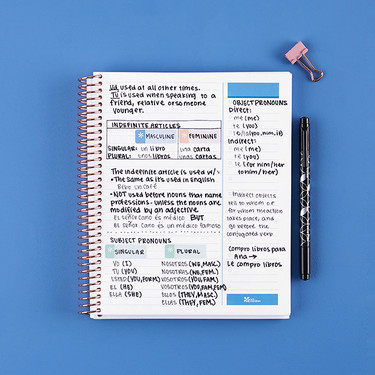 Ud used at all other times.
Tú is used when speaking to a
friend, relative or someone
younger.
INDEFINITE ARTICLES
MASCULINE FEMININE
SINGULAR: un libro una carta
PLURAL: unos libros unas cartas
The indefinite article is used w/:
• The same as it's used in English
• NOT used before nouns that name
professions - unless the nouns are
modified by an adjective
El señor como es médico BUT
El señor como es un médico famoso
SUBJECT PRONOUNS
SINGULAR PLURAL
YO (I) NOSOTROS (WE, MASC.)
TÚ (YOU) NOSOTRAS (WE, FEM.)
USTED (YOU, FORM) VOSOTROS (YOU, FAM)
ÉL (HE) VOSOTRAS (YOU, FAM, FEM)
ELLA (SHE) ELLOS (THEY, MASC.)
ELLAS (THEY, FEM.)
OBJECT PRONOUNS
Direct:
me (me)
te (you)
Indirect:
me (me)
te (you)
le (for him/her
to him/her)
Indirect objects
tell to whom or
for whom the action
takes place, and
go before the
conjugated verb
Compro libros para
Ana →
Le compro libros